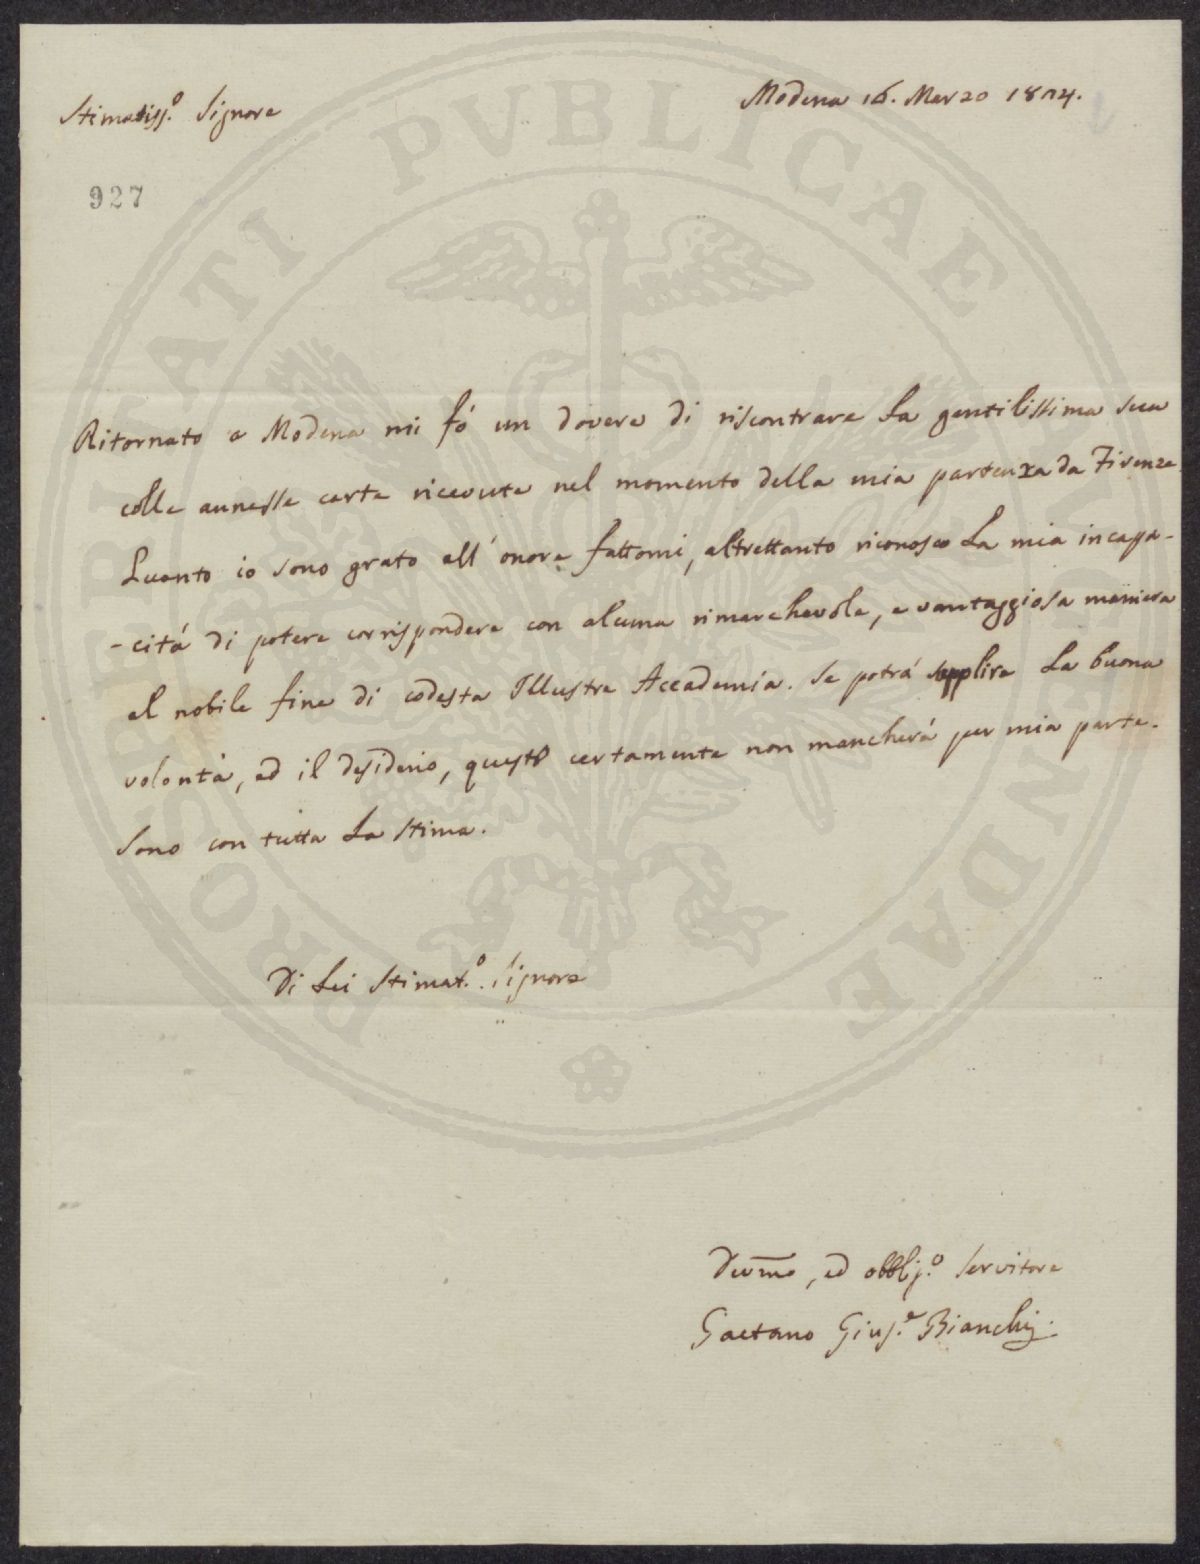 Modena 16. Marzo 1804.
Stimatiss.º Signore
927
Ritornato a Modena mi fó un dovere di riscontrare la gentilissima sua
colle annesse carte ricevute nel momento della mia partenza da Firenze
Quanto io sono grato all'onore fattomi, altrettanto riconosco la mia incapa-
-citá di potere corrispondere con alcuna rimarchevole, e vantaggiosa maniera
al nobile fine di codesta Illustre Accademia. Se potrá supplire la buona
volontà, ed il desiderio, questo certamente non mancherá per mia parte.
Sono con tutta la stima.
Di Lei Stimat.º Signore
Devmo, ed obblig.º Servitore
Gaetano Gius.e Bianchi
PROSPERITATI PVBLICAE AVGENDAE